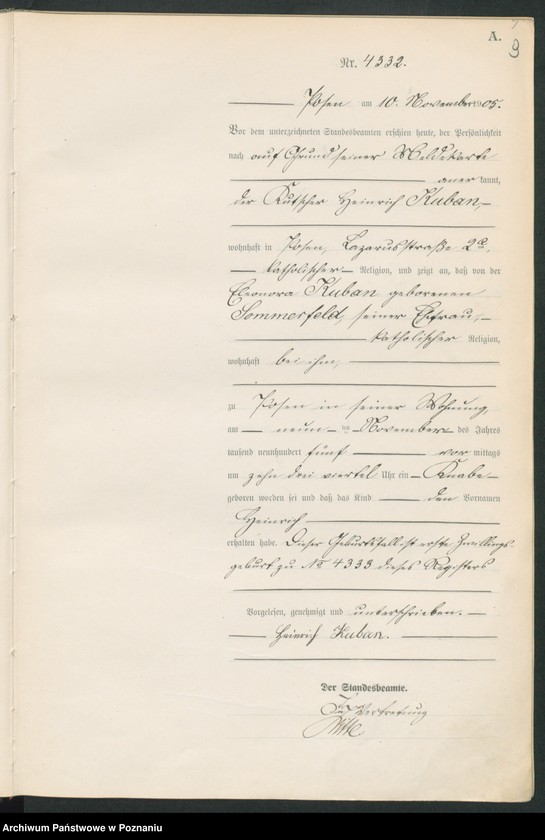 A.
9
Nr. 4332.
Posen am 10. November 1905.
Vor dem unterzeichneten Standesbeamten erschien heute, der Persönlichkeit
nach auf Grund seiner Meldekarte
anerkannt,
der Kutscher Heinrich Kuban,
wohnhaft in Posen, Lazarusstraße 2a,
katholischer Religion, und zeigt an, daß von der
Eleonora Kuban geborenen
Sommerfeld, seiner Ehefrau,
katholischer Religion,
wohnhaft bei ihm,
zu Posen in seiner Wohnung,
am neun ten November des Jahres
tausend neunhundert fünf vor mittags
um zehn drei viertel Uhr ein Knabe
geboren worden sei und daß das Kind den Vornamen
Heinrich
erhalten habe. Dieser Geburtsfall ist erste Zwillings-
geburt zu No 4333 dieses Registers
Vorgelesen, genehmigt und unterschrieben.
Heinrich Kuban.
Der Standesbeamte.
In Vertretung
Archiwum Państwowe w Poznaniu